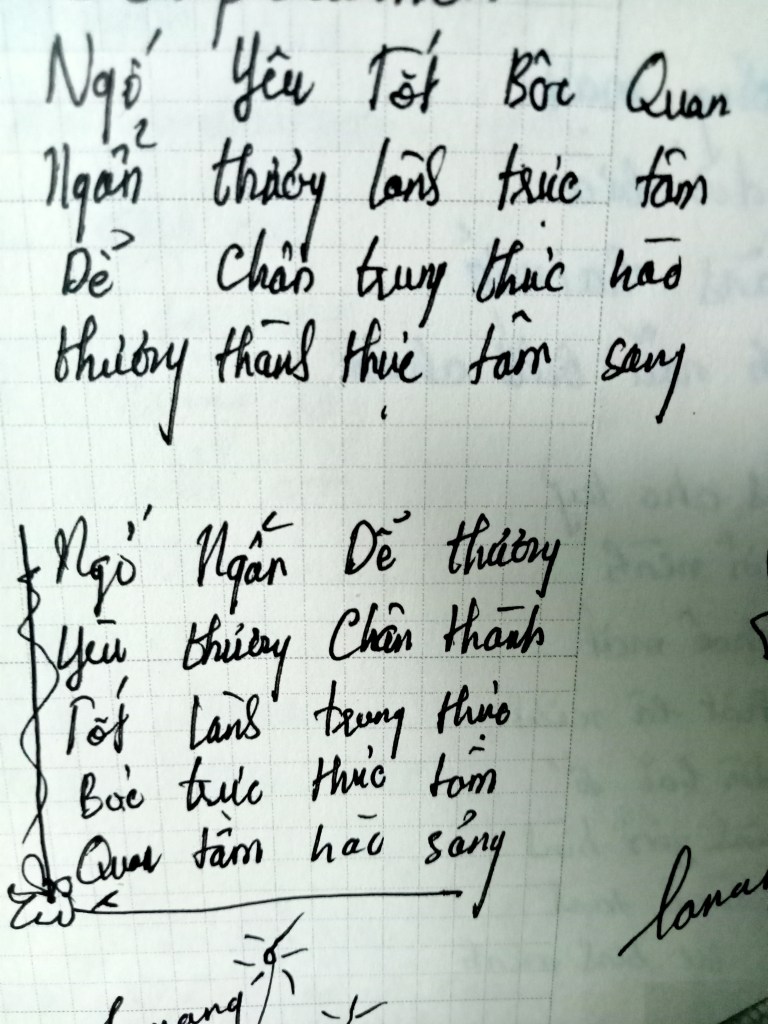 Ngố Yêu Tốt Bộc Quan
Ngẩn thương lành trực tâm
Dể Chân trung thực hào
thương thành thực tâm sang
Ngố Ngẩn Dể thương
Yêu thương Chân thành
Tốt lành trung thực
Bộc trực thực tâm
Quan tâm hào sảng